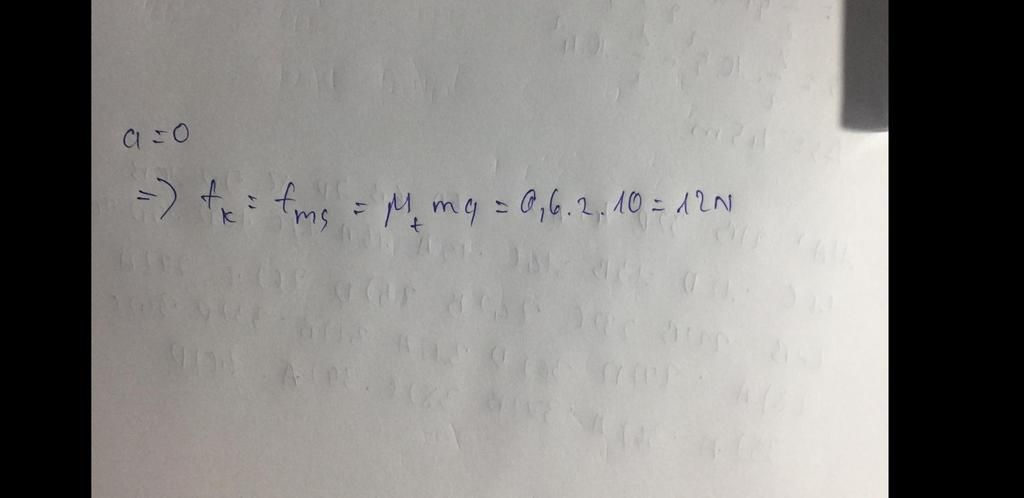 a = 0
=> fk = fms = μt mg = 0,6.2.10 = 12N